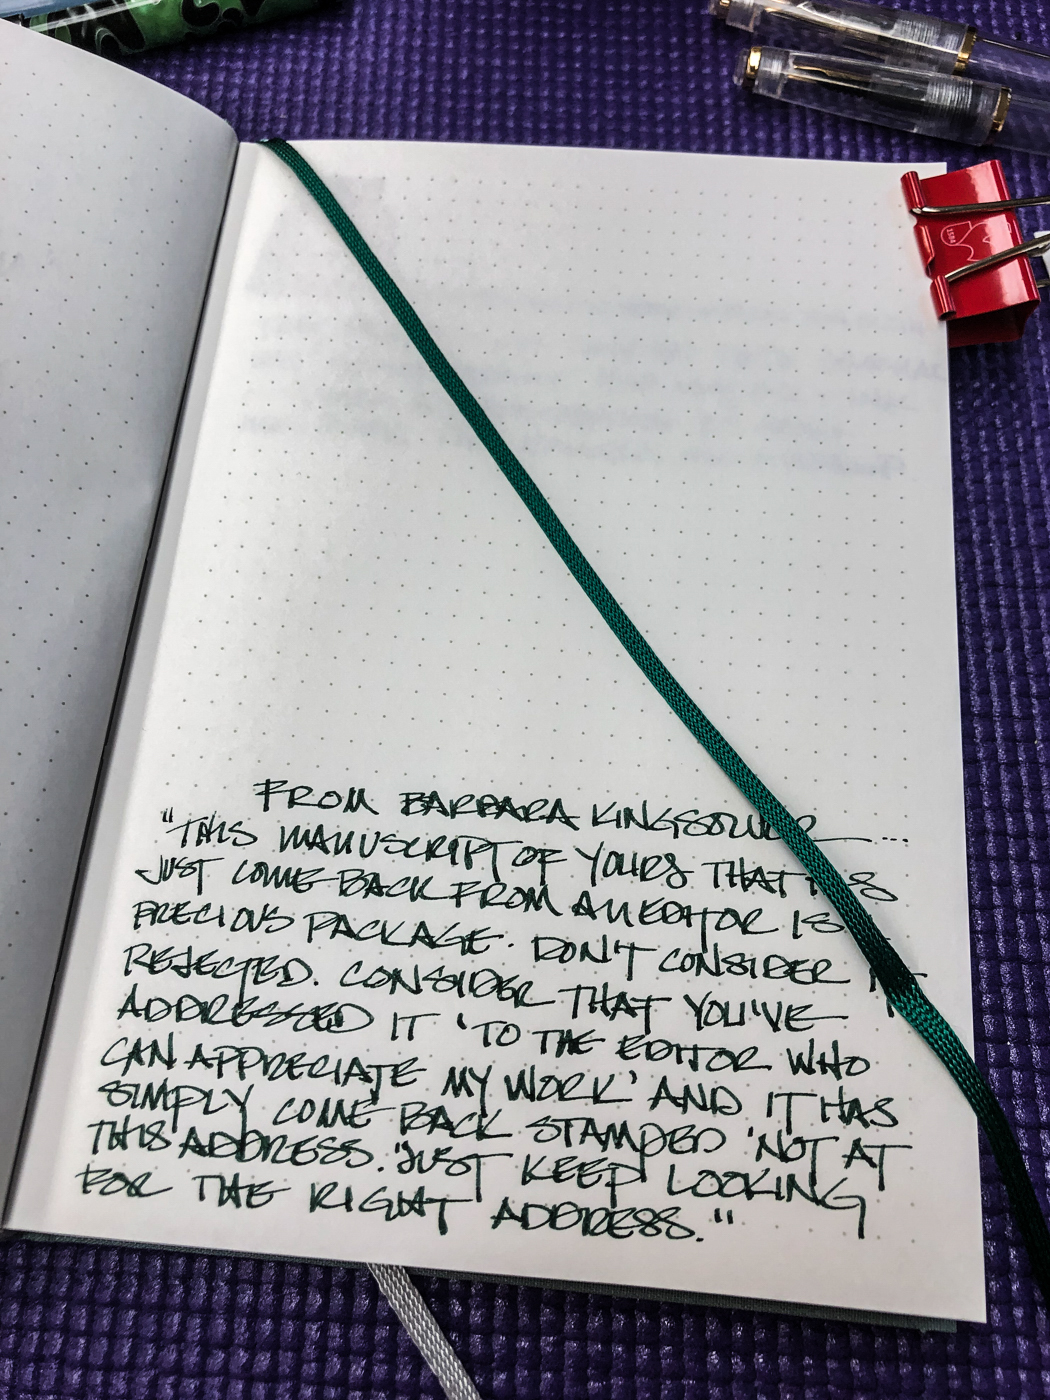 FROM BARBARA KINGSOLVER ...
"THIS MANUSCRIPT OF YOURS THAT HAS
JUST COME BACK FROM AN EDITOR IS
PRECIOUS PACKAGE. DON'T CONSIDER IT
REJECTED. CONSIDER THAT YOU'VE
ADDRESSED IT 'TO THE EDITOR WHO
CAN APPRECIATE MY WORK' AND IT HAS
SIMPLY COME BACK STAMPED 'NOT AT
THIS ADDRESS.' JUST KEEP LOOKING
FOR THE RIGHT ADDRESS."